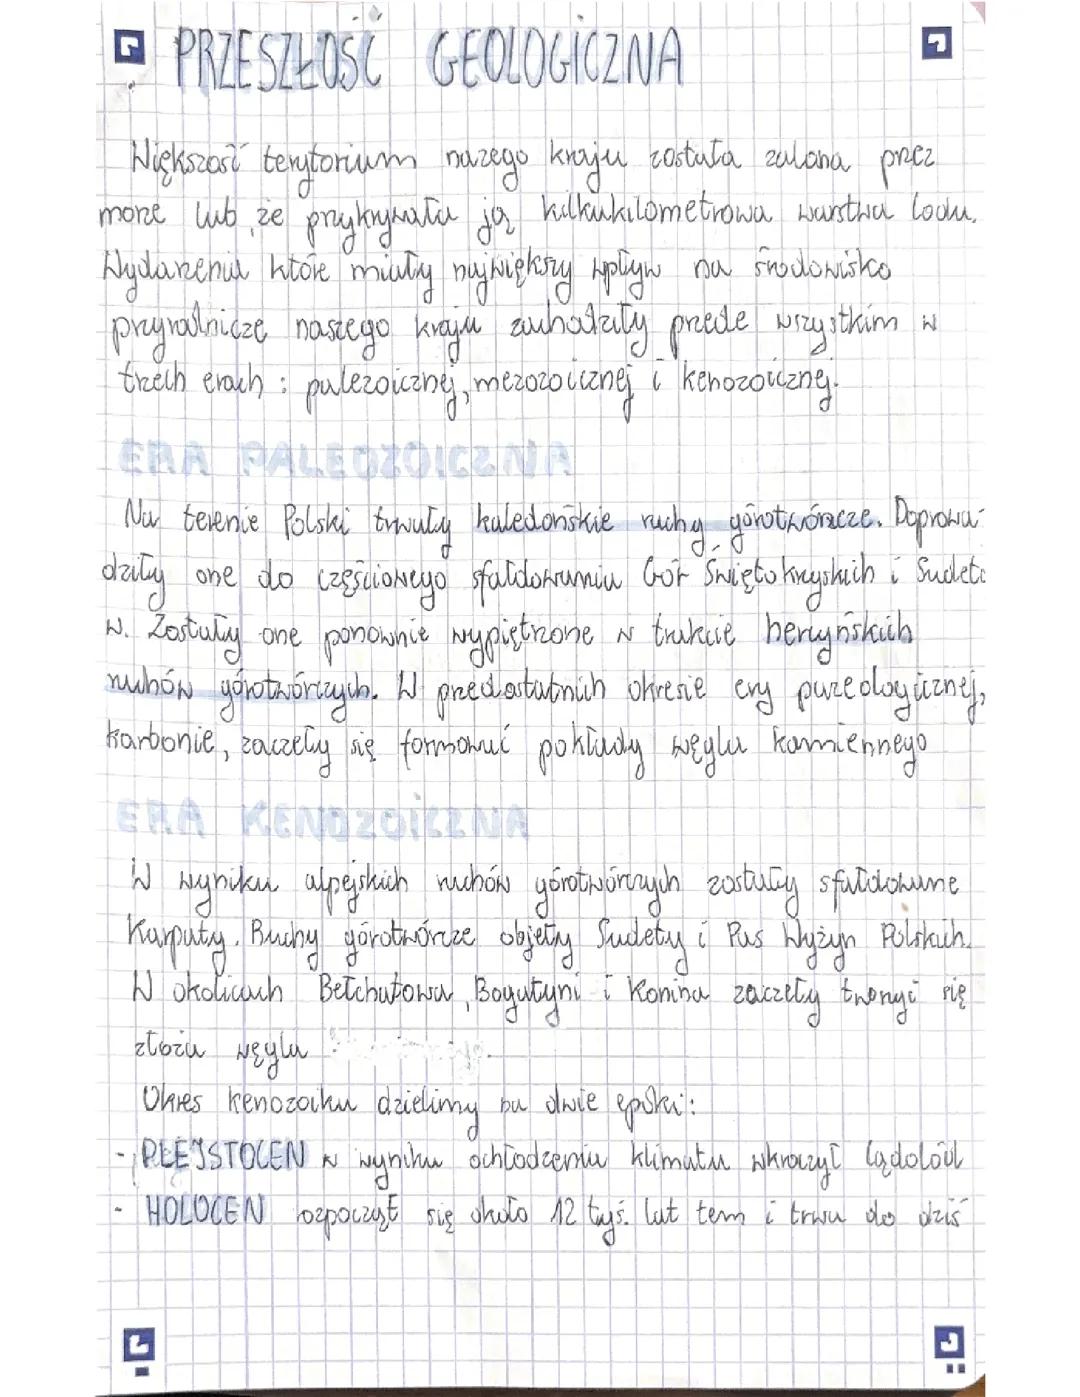 PRZESZŁOŚĆ GEOLOGICZNA
Większość terytorium nazego kraju została zalana przez
morze lub że przykrywała ją kilkukilometrowa warstwa lodu.
Wydarzenia które miały największy wpływ na środowisko
przyrodnicze naszego kraju zachodziły przede wszystkim w
trzech erach : palezoicznej, mezozoicznej i kenozoicznej.
ERA PALEOZOICZNA
Na terenie Polski trwały kaledońskie ruchy górotwórcze. Doprowa-
dziły one do częściowego sfałdowania Gór Świętokrzyskich i Sudetó
w. Zostały one ponownie wypiętrzone w trakcie hercyńskich
ruchów górotwórczych. W przedostatnich okresie ery pazeologicznej,
karbonie, zaczęły się formować pokłady węgla kamiennego
ERA KENOZOICZNA
W wyniku alpejskich ruchów górotwórczych zostały sfałdowane
Karpaty. Ruchy górotwórcze objęły Sudety i Pas Wyżyn Polskich.
W okolicach Bełchatowa, Bogatyni i Konina zaczęły tworzyć się
złoża węgla
Okres kenozoiku dzielimy na dwie epoki:
- PLEJSTOCEN w wyniku ochłodzenia klimatu wkroczył lądolód
- HOLOCEN rozpoczął się około 12 tyś. lat tem i trwa do dziś